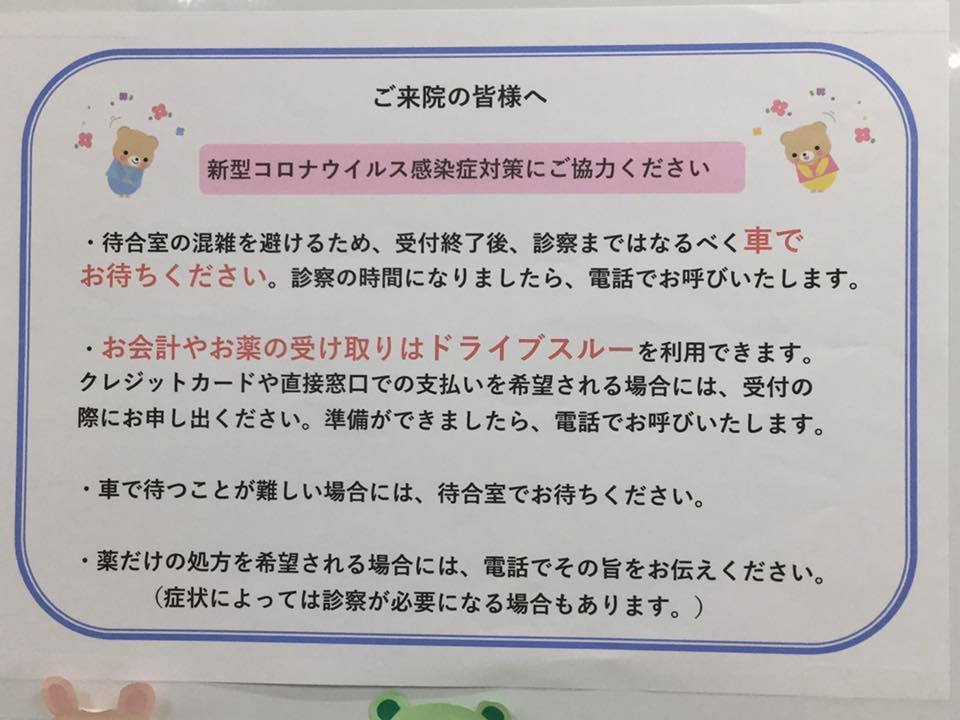 ご来院の皆様へ
新型コロナウイルス感染症対策にご協力ください
・待合室の混雑を避けるため、受付終了後、診察まではなるべく車で
お待ちください。診察の時間になりましたら、電話でお呼びいたします。
・お会計やお薬の受け取りはドライブスルーを利用できます。
クレジットカードや直接窓口での支払いを希望される場合には、受付の
際にお申し出ください。準備ができましたら、電話でお呼びいたします。
・車で待つことが難しい場合には、待合室でお待ちください。
・薬だけの処方を希望される場合には、電話でその旨をお伝えください。
（症状によっては診察が必要になる場合もあります。）